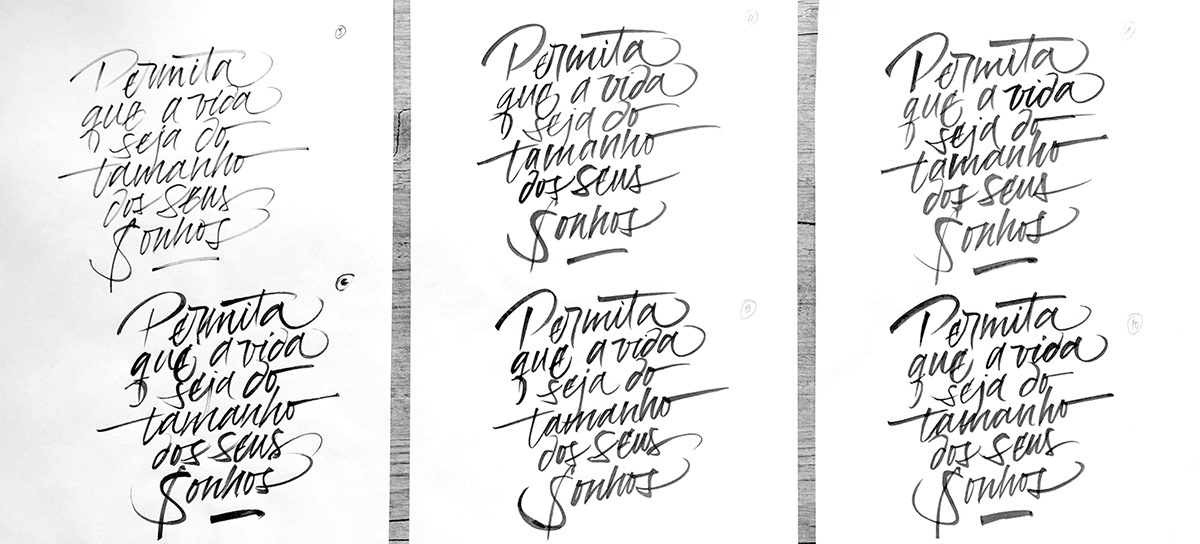 Permita
que a vida
seja do
tamanho
dos seus
Sonhos
Permita
que a vida
seja do
tamanho
dos seus
Sonhos
Permita
que a vida
seja do
tamanho
dos seus
Sonhos
Permita
que a vida
seja do
tamanho
dos seus
Sonhos
9
Permita
que a vida
seja do
tamanho
dos seus
Sonhos
10
Permita
que a vida
seja do
tamanho
dos seus
Sonhos